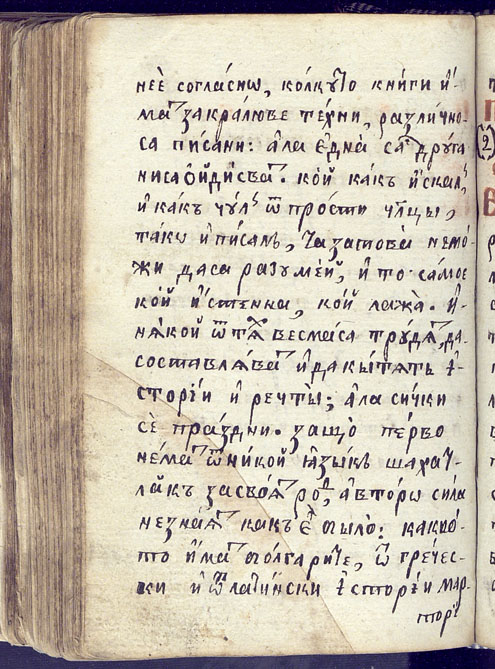 неѐ согла́сны, ко́лкꙋто кни́ги и҆́-
маⷮ за кра́люве те́хни, разли́чно-
са пи́сани: а҆ла є҆дна̀ саⷭ҇ дрꙋга
ниса ѻ҆йди́сваⷮ. ко́й какъ и҆скалъ,
и҆ какъ чꙋлъ ѿ про́сти чл҃цы,
тако и҆ писалъ, та затова̀ немо́-
жи даса разꙋмѣ́й, и҆ то самое
ко́й и҆́стенна, кой лажа̀. И҆-
нѧкой ѿ тѣⷯ весмаса трꙋдѧⷮ, да-
составлѧваⷮ и҆ да кытѧтъ і҆-
сторі́и и҆ речты̀; а҆ла си́чки
сѐ пра́здни. защо̀ пе́рво
не́маⷮ ѿ ни́кой ꙗ҆зы́къ шаха-
лакъ засвоѧⷮ роⷣ, а҆вторы сила
незнаѧⷮ какъ є҆ было̀: какво́-
то и҆́маⷮ болгариⷮте, ѿ гре́чес-
ки и҆ ѿ лати́нски і҆сторі́и мар-
торі